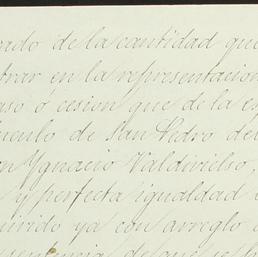 ado de la cantidad que
brar en la representacion
aso ó cesion que de la es
culo de San Pedro del
n Ygnacio Valdivielso,
y perfecta igualdad
uirido ya con arreglo